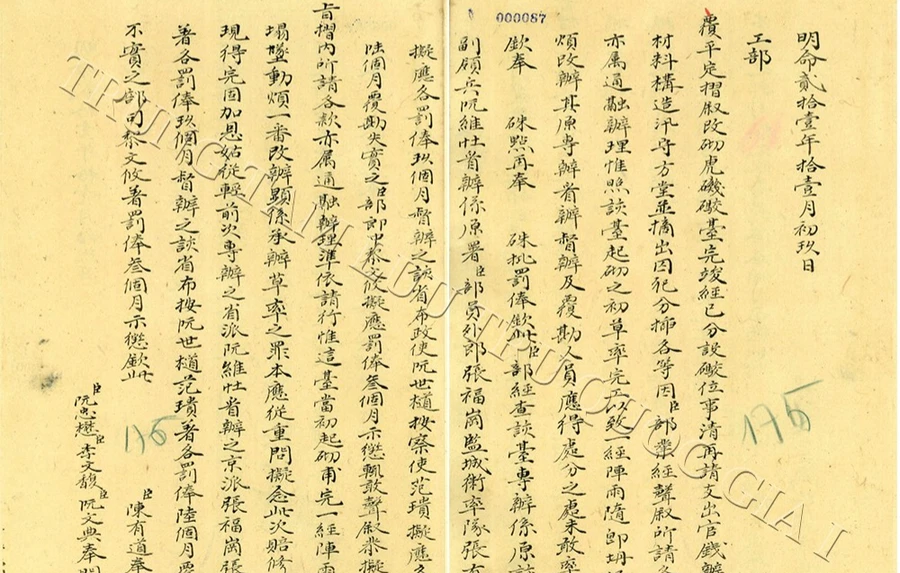 000087
明命貳拾壹年拾壹月初玖日
工部
覆平定摺敘改砌虎磯礮臺完竣經已分設礮位事清再請支出官錢辦
材料構造汛守方堂並摘出因犯分插各等因臣部業經聲敘所請各
亦屬通融辦理惟照該臺起砌之初草率完工以致一經陣雨隨即坍
煩改辦其原專辦省辦督辦及覆勘人員應得處分之處未敢率
欽奉 硃點再奉 硃批罰俸欽此臣部經查該臺專辦係原該
副領兵阮維壯省辦係原署臣部員外郎張福崗監城衛率隊張
擬應各罰俸玖個月督辦之該省布政使阮世樋按察使范璝擬應各
陸個月覆勘失實之臣部郎中黎文攸擬應罰俸叁個月示懲輒敢聲敘恭擬
旨摺內所請各款亦屬通融辦理準依請行惟這臺當初起砌甫完一經陣雨
塌墜動煩一番改辦顯係承辦草率之罪本應從重問擬念此次賠修
現得完固加恩姑從輕前次專辦之省派阮維壯省辦之京派張福崗張
著各罰俸玖個月督辦之該省布按阮世樋范璝著各罰俸陸個月覆
不實之部司黎文攸著罰俸叁個月示懲欽此
臣阮忠懋臣李文馥臣阮文典奉
臣陳有道奉
175
175
TRUNG TÂM LƯU TRỮ QUỐC GIA I